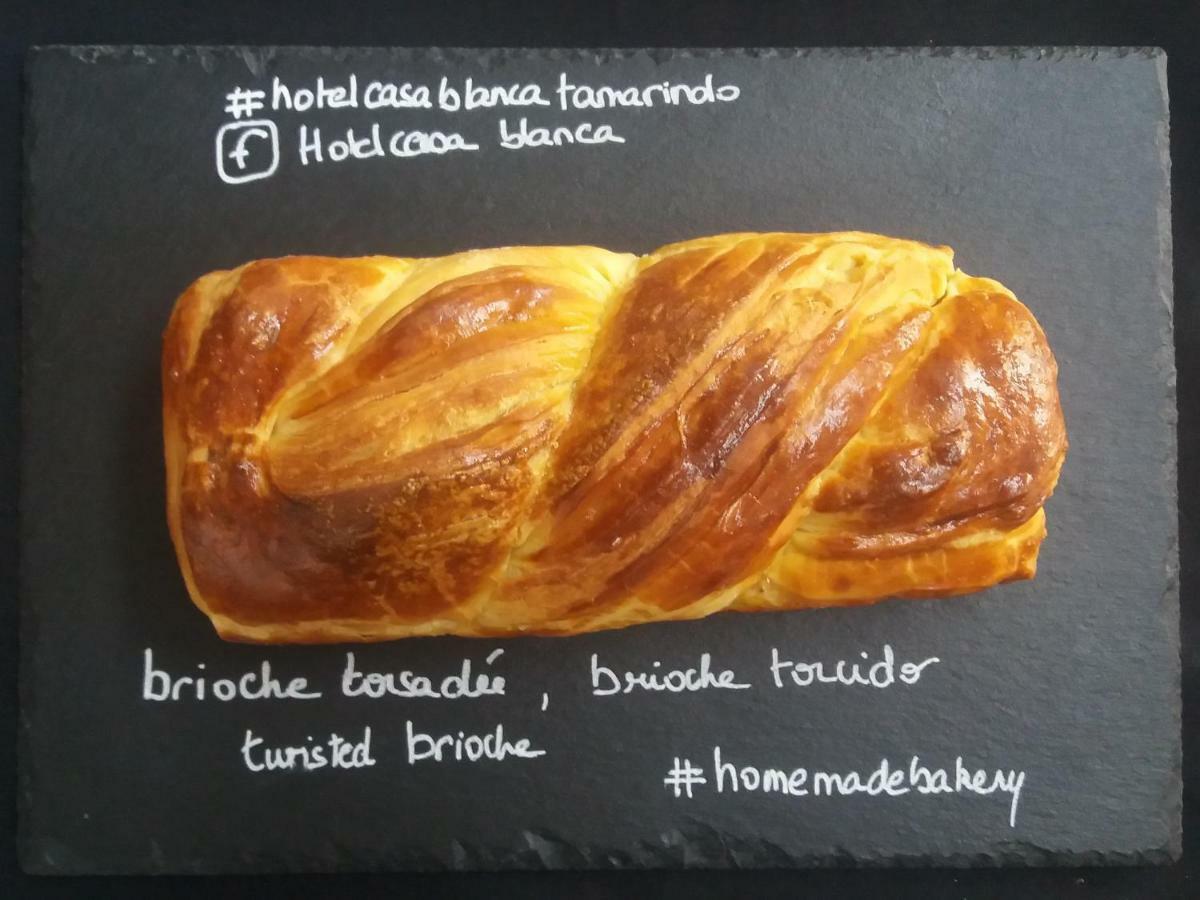 #hotelcasablancatamarindo
f Hotelcasa blanca
brioche torsadée, brioche torcido
twisted brioche
#homemadebakery